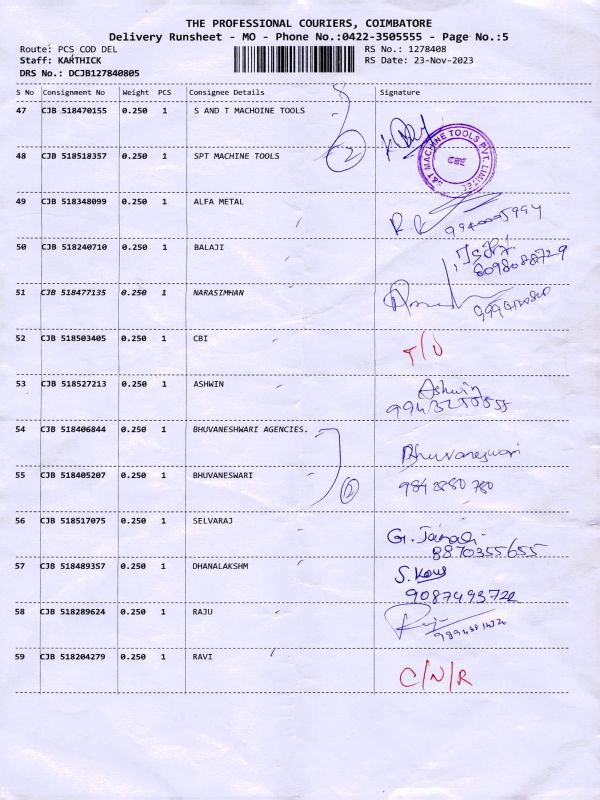 THE PROFESSIONAL COURIERS, COIMBATORE
Delivery Runsheet - MO - Phone No.:0422-3505555 - Page No.:5
Route: PCS COD DEL RS No.: 1278408
Staff: KARTHICK RS Date: 23-Nov-2023
DRS No.: DCJB127840805
S No Consignment No Weight PCS Consignee Details Signature
47 CJB 518470155 0.250 1 S AND T MACHOINE TOOLS
S&T MACHINE TOOLS PVT. LIMITED
CBE
48 CJB 518518357 0.250 1 SPT MACHINE TOOLS 2
49 CJB 518348099 0.250 1 ALFA METAL
50 CJB 518240710 0.250 1 BALAJI
51 CJB 518477135 0.250 1 NARASIMHAN
52 CJB 518503405 0.250 1 CBI
53 CJB 518527213 0.250 1 ASHWIN Ashwin
54 CJB 518406844 0.250 1 BHUVANESHWARI AGENCIES. Bhuvaneswari
55 CJB 518405207 0.250 1 BHUVANESWARI 2
56 CJB 518517075 0.250 1 SELVARAJ
8870355655
57 CJB 518489357 0.250 1 DHANALAKSHM
9087493722
58 CJB 518289624 0.250 1 RAJU Raju
59 CJB 518204279 0.250 1 RAVI C/N/R